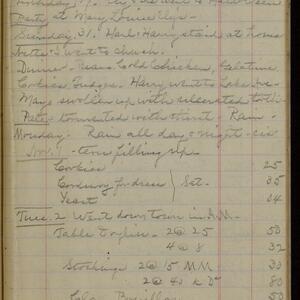 Party at Mary Louise
Sunday 31. Harl. Harry staid at home
went to church.
Dinner - Cold Chicken, Gelatine
Cookies Fudge. Harry went to Lake Ave.
Mary swollen up with ulcerated tooth
Pater tormented with thirst - Rain -
Monday Rain all day & night - cis
Nov. 1 - tern filling up.
Cookies 25
Corduroy for dress } Set. 35
Yeast 04
Tues. 2 Went down town in A.M.
Table 2 @ 25 50
4 @ 8 32
Stockings 2 @ 15 MM 30
2 @ 40 K D 80